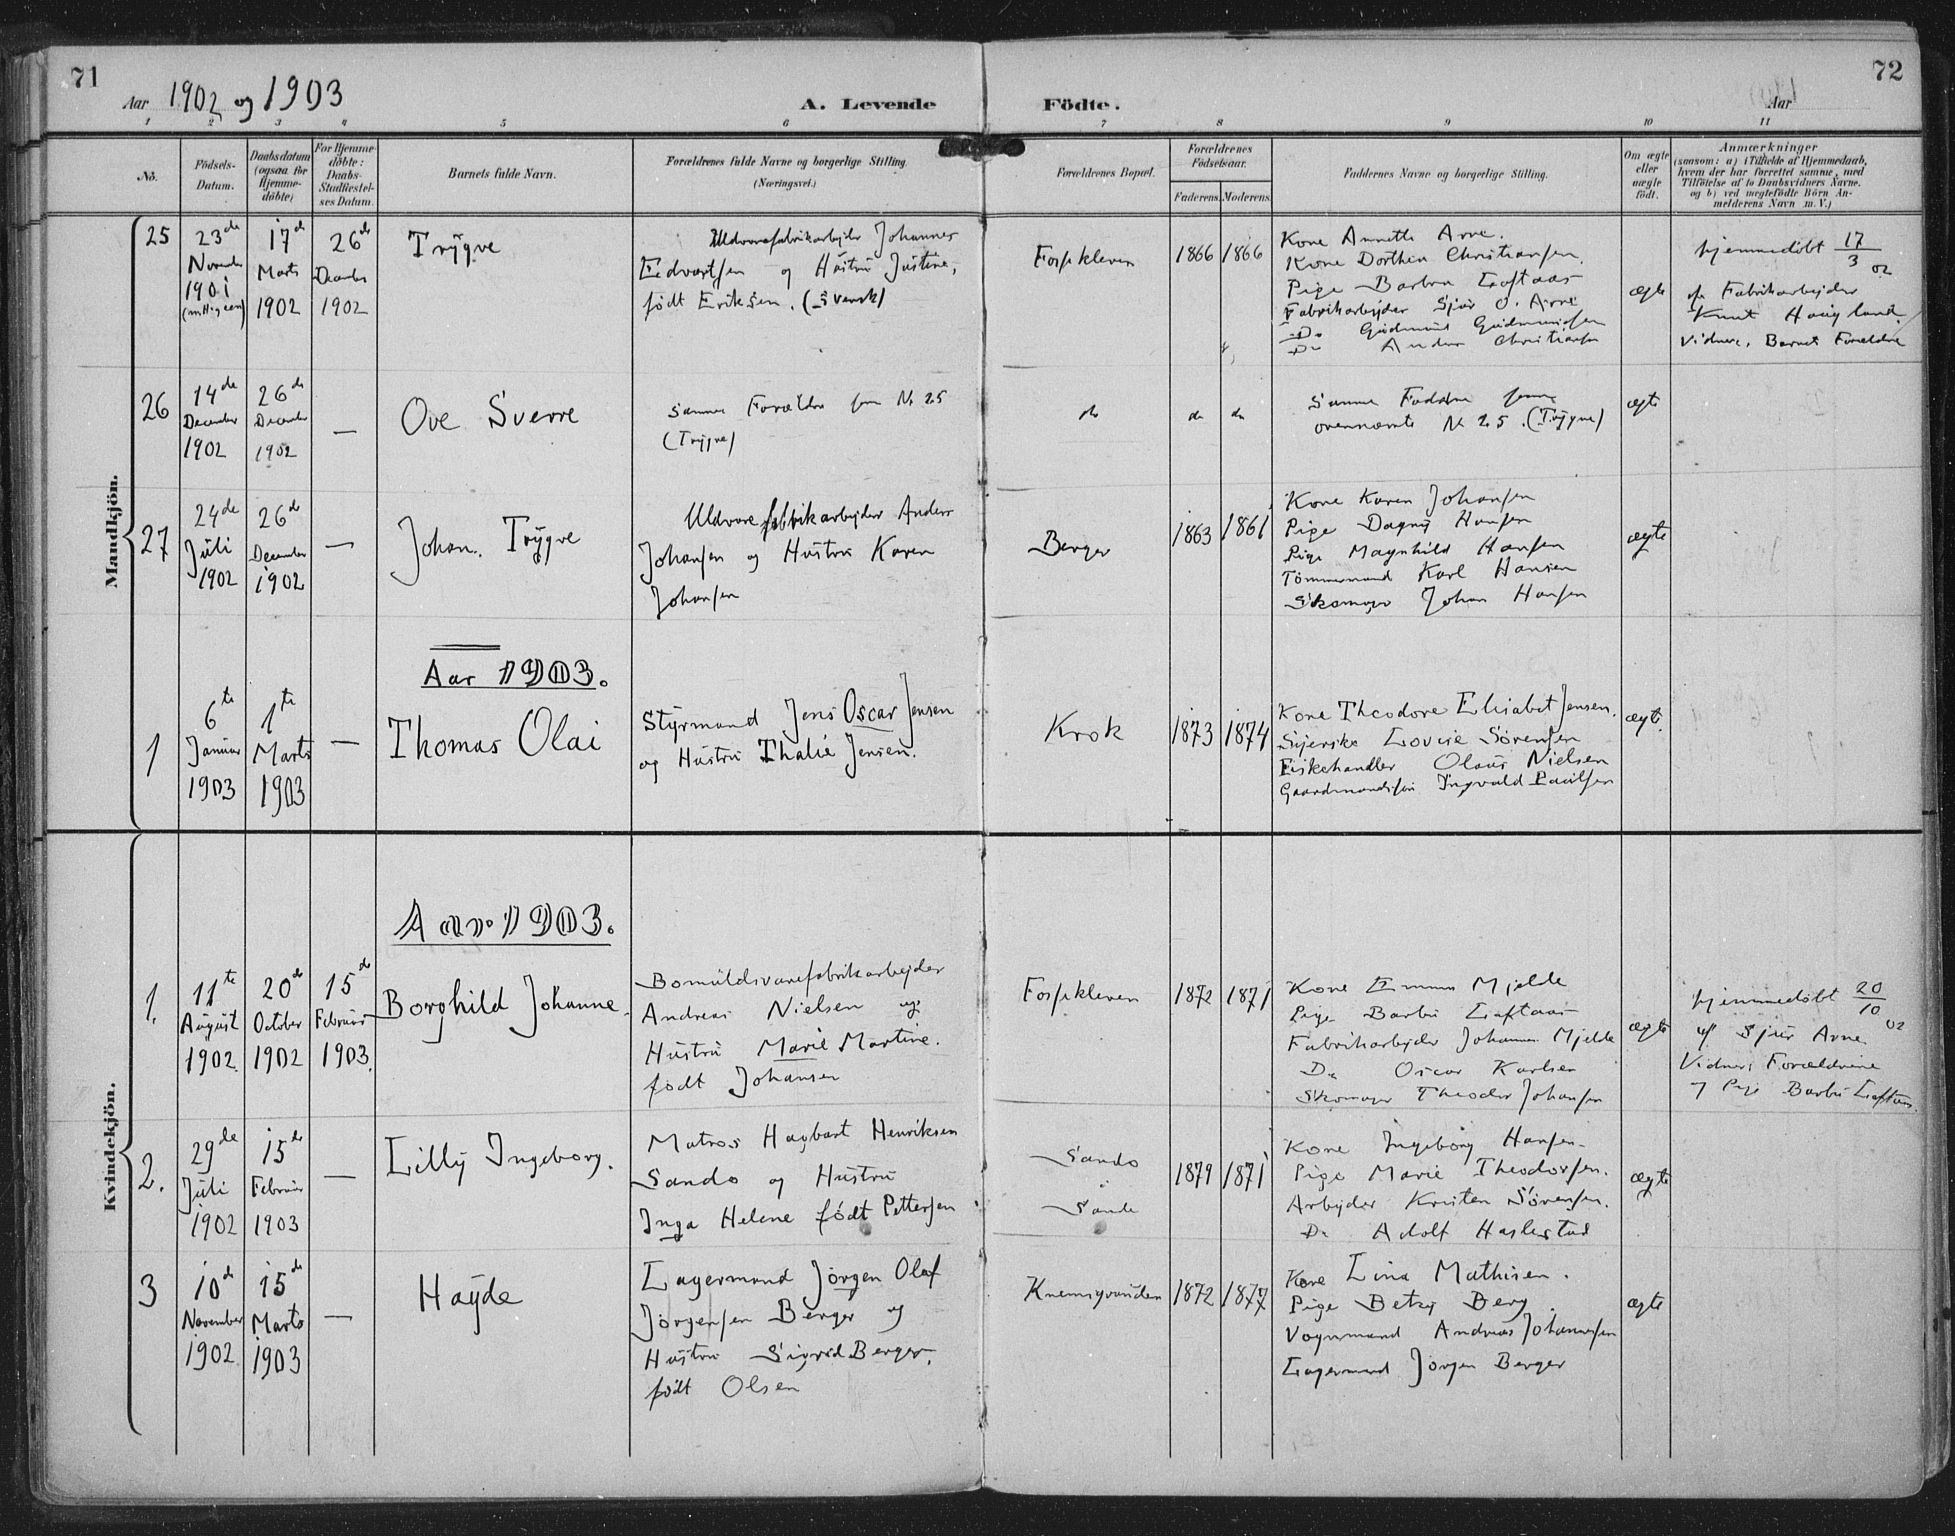 71
Aar 1902 og 1903
A. Levende Födte.
Aar
72
1 2 3 4 5 6 7 8 9 10 11
No.
Födsels-
Datum.
Daabsdatum
(ogsaa for
Hjemme-
döbte)
For Hjemme-
döbte:
Daabs-
Stadfæstel-
ses Datum.
Barnets fulde Navn.
Forældrenes fulde Navne og borgerlige Stilling.
(Næringsvei.)
Forældrenes Bopæl.
Forældrenes
Födselsaar.
Faderens. Moderens.
Faddernes Navne og borgerlige Stilling.
Om ægte
eller
uægte
födt.
Anmærkninger
(saasom: a) i Tilfælde af Hjemmedaab,
hvem der har forrettet samme, med
Tilföielse af to Daabsvidners Navne.
og b) ved uægtefödte Börn An-
melderens Navn m. V.)
Mandkjön.
25
23de
November
1901
17de
Marts
1902
26de
December
1902
Trygve
Uldvarefabrikarbejder Johannes
Edvartsen og Hustru Justine,
født Eriksen. (Svensk)
Fosſekleven
1866 1866
Kone Annette Arne.
Kone Dorthea Christiansen.
Pige Barbra Loftaas
Fabrikarbejder Sjur O. Arne
Do Gudmund Gudmundsen
Do Anders Christiansen
ægte
hjemmedøbt 17/3 02
af Fabrikarbejder
Knut Haugland.
Vidner, Barnets Forældre
26
14de
December
1902
26de
December
1902
—
Ove Sverre
Samme Forældre som No 25
(Trygve)
do
do do
Samme Faddere som
ovennævnte No 25. (Trygve)
ægte
27
24de
Juli
1902
26de
December
1902
—
Johan. Trygve
Uldvarefabrikarbejder Anders
Johansen og Hustru Karen
Johansen
Berger
1863 1861
Kone Karen Johansen
Pige Dagny Hansen
Pige Magnhild Hansen
Tømmermand Karl Hansen
Skomager Johan Hansen
ægte
Aar 1903.
1
6te
Januar
1903
1te
Marts
1903
—
Thomas Olai
Styrmand Jens Oscar Jensen
og Hustru Thalie Jensen.
Krok
1873 1874
Kone Theodore Elisabet Jensen.
Syerske Lovise Sørensen
Fiskehandler Olaus Nielsen
Gaardmandssøn Ingvald Paulsen
ægte.
Kvindekjön.
Aar 1903.
1.
11te
August
1902.
20de
October
1902
15de
Februar
1903.
Borghild Johanne.
Bomuldsvarefabrikarbejder
Andreas Nielsen og
Hustru Marie Martine.
født Johansen
Fosſekleven
1872 1871
Kone Emma Mjelde
Pige Barbra Loftaas
Fabrikarbejder Johannes Mjelde
Do Oscar Karlsen
Skomager Theodor Johansen
ægte
hjemmedøbt 20/10 02
af Sjur Arne
Vidner: Forældrene
og Pige Barbra Loftaas.
2.
29de
Juli
1902
15de
Februar
1903
—
Lilly Ingeborg.
Matros Hagbart Henriksen
Sando og Hustru
Inga Helene født Pettersen
Sando
Sande
1879 1871
Kone Ingeborg Hansen
Pige Marie Theodorsen.
Arbejder Kristen Sørensen.
Do Adolf Haslestad
ægte
3
10de
November
1902
15de
Marts
1903
—
Hayde
Lagermand Jørgen Olaf
Jørgensen Berger og
Hustru Sigrid Berger.
født Olsen
1872 1877
Kone Lina Mathisen.
Pige Betsy Berg
Vognmand Andreas Johannesen
Lagermand Jørgen Berger
ægte